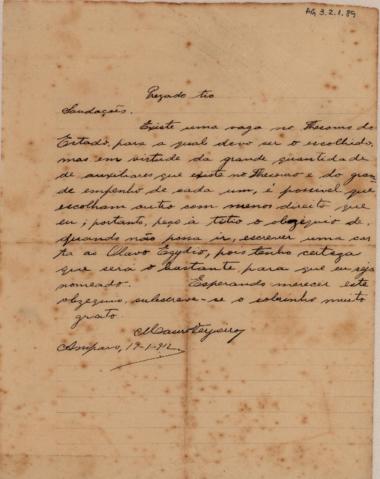 AG.3.2.1.89
Prezado tio
Saudações.
Existe uma vaga no Thesouro do
Estado, para a qual devo ser o escolhido,
mas em virtude da grande quantidade
de auxiliares que existe no Thesouro e do gran
de empenho de cada um, é possivel que
escolham outro com menos direito que
eu; portanto, peço á titio o obzequio de,
quando não possa ir, escrever uma car
ta ao Olavo Egydio, pois tenho certeza
que será o bastante para que eu seja
nomeado. Esperando merecer este
obzequio, subscreve-se o sobrinho muito
grato
Amparo, 19-1-912